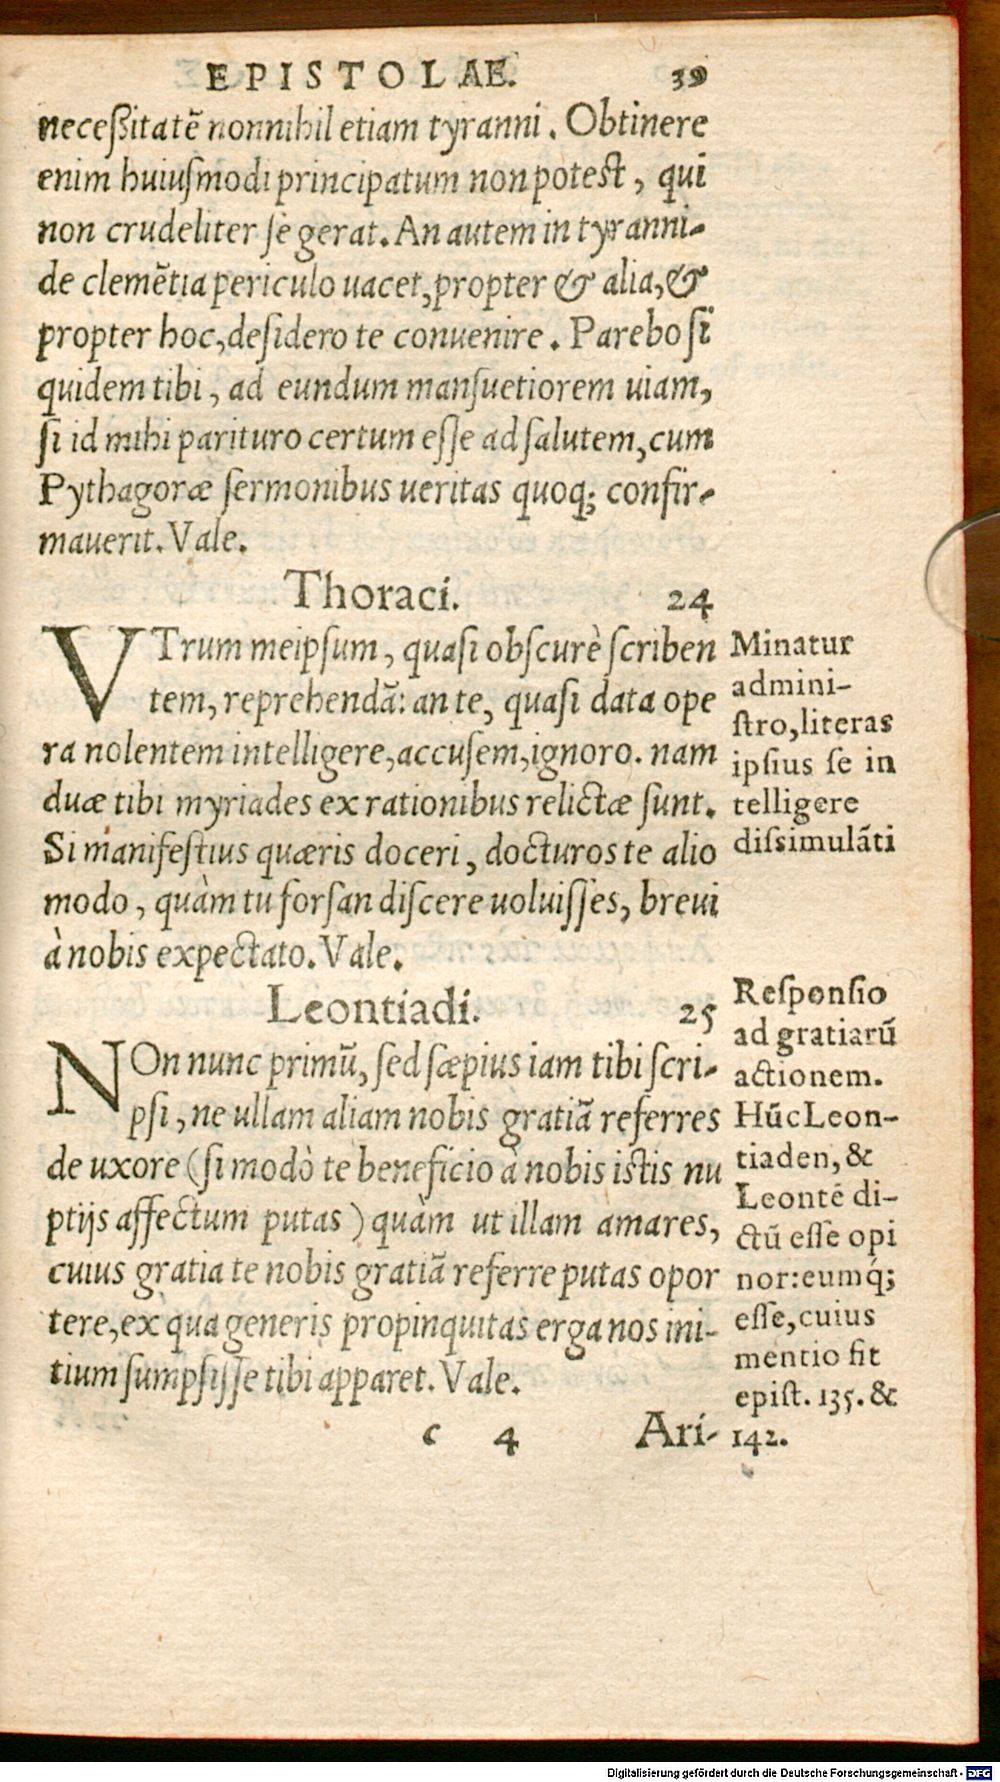 EPISTOLAE. 39
neceßitatẽ nonnihil etiam tyranni. Obtinere
enim huiuſmodi principatum non poteſt, qui
non crudeliter ſe gerat. An autem in tyranni-
de clemẽtia periculo uacet, propter & alia, &
propter hoc, deſidero te conuenire. Parebo ſi
quidem tibi, ad eundum manſuetiorem uiam,
ſi id mihi parituro certum eſſe ad ſalutem, cum
Pythagoræ ſermonibus ueritas quoq; confir-
mauerit. Vale.
Thoraci. 24
VTrum meipſum, quaſi obſcurè ſcriben
tem, reprehendã: an te, quaſi data ope
ra nolentem intelligere, accuſem, ignoro. nam
duæ tibi myriades ex rationibus relictæ ſunt.
Si manifeſtius quæris doceri, docturos te alio
modo, quàm tu forſan diſcere uoluiſſes, breui
à nobis expectato. Vale.
Minatur
admini-
ſtro, literas
ipſius ſe in
telligere
diſsimulãti
Leontiadi. 25
NOn nunc primũ, ſed ſæpius iam tibi ſcri-
pſi, ne ullam aliam nobis gratiã referres
de uxore (ſi modò te beneficio à nobis iſtis nu
ptijs affectum putas) quàm ut illam amares,
cuius gratia te nobis gratiã referre putas opor
tere, ex qua generis propinquitas erga nos ini-
tium ſumpſiſſe tibi apparet. Vale.
Reſponſio
ad gratiarũ
actionem.
Hũc Leon-
tiaden, &
Leontẽ di-
ctũ eſſe opi
nor: eumq́;
eſſe, cuius
mentio fit
epiſt. 135. &
142.
c 4 Ari-
Digitalisierung gefördert durch die Deutsche Forschungsgemeinschaft - DFG